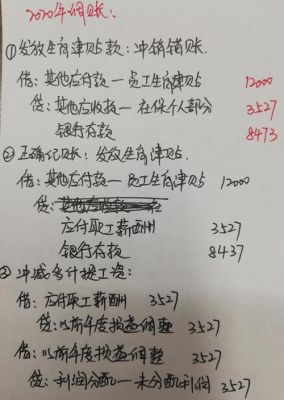 2020年调账:
①发放生育津贴款:冲销销账.
借:其他应付款一员工生育津贴 12000
贷:其他应收款一社保个人部分 3527
银行存款 8473
②正确记账:发放生育津贴.
借:其他应付款一员工生育津贴 12000
贷:
应付职工薪酬 3527
银行存款 8437
③冲减多计提工资:
借:应付职工薪酬 3527
贷:以前年度损益调整 3527
借:以前年度损益调整 3527
贷:利润分配一未分配利润 3527